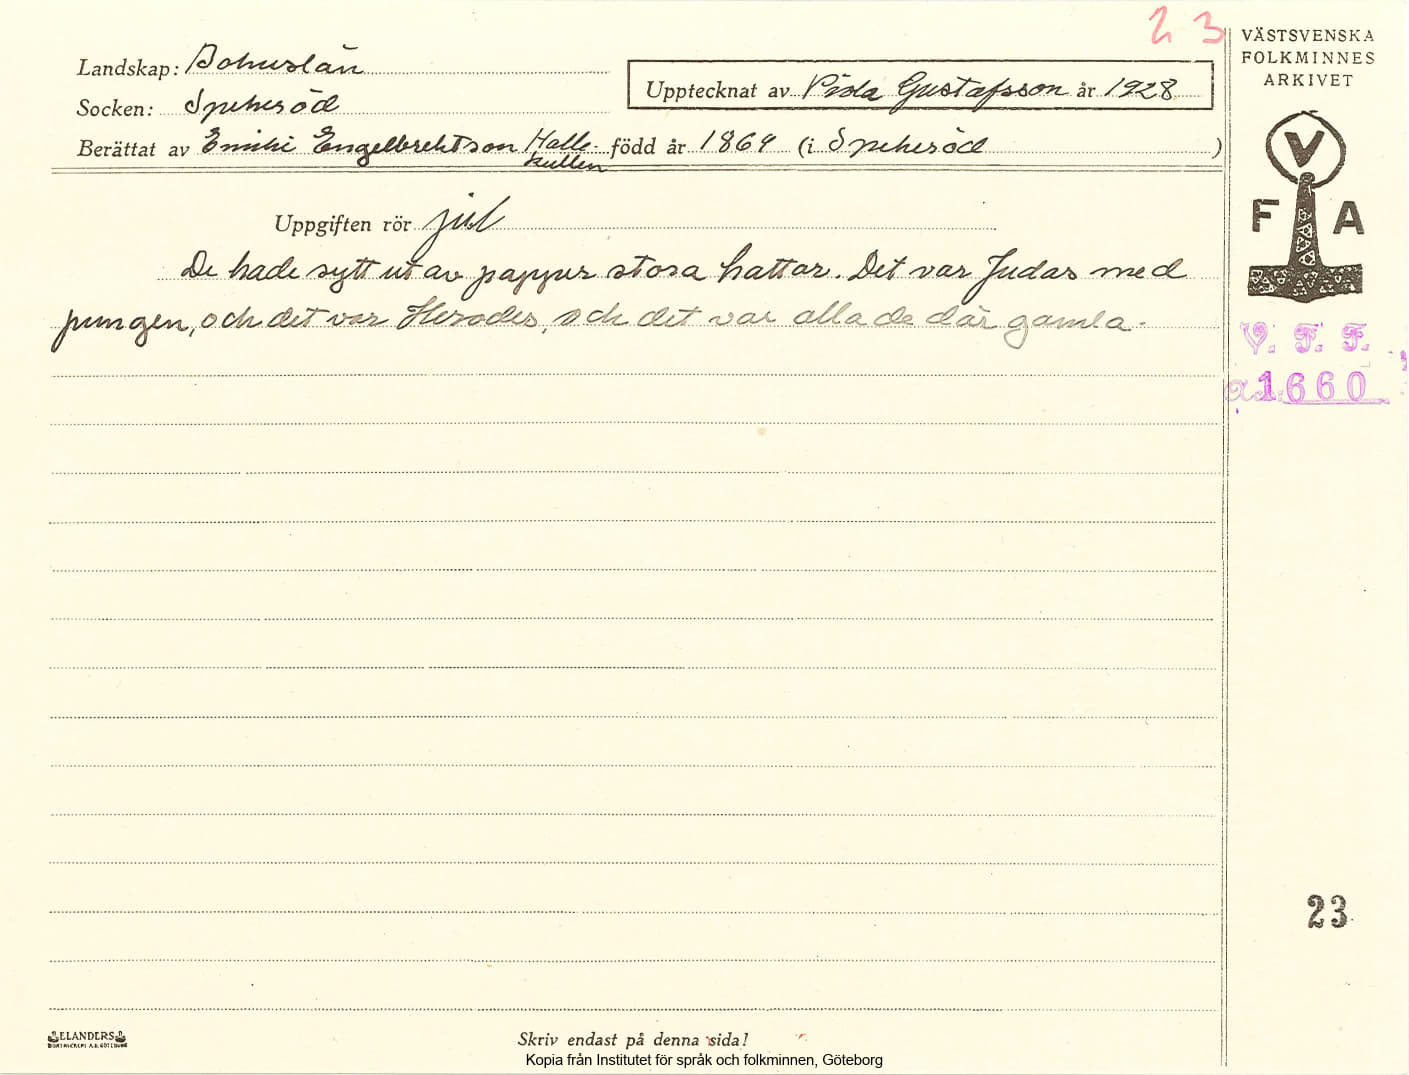 23
Landskap: Bohuslän
VÄSTSVENSKA
FOLKMINNES
ARKIVET
Upptecknat av Vida Gustafsson år 1928
Socken: Spekeröd
Berättat av Emili Engelbrektson Halle-
kullen
född år 1864 (i Spekeröd )
V
F A
Uppgiften rör jul
De hade sytt ut av papper stora hattar. Det var Judas med
pungen, och det var Herodes, och det var alla de där gamla.
V. F. F.
1660
23
ELANDERS
Skriv endast på denna sida!
Kopia från Institutet för språk och folkminnen, Göteborg